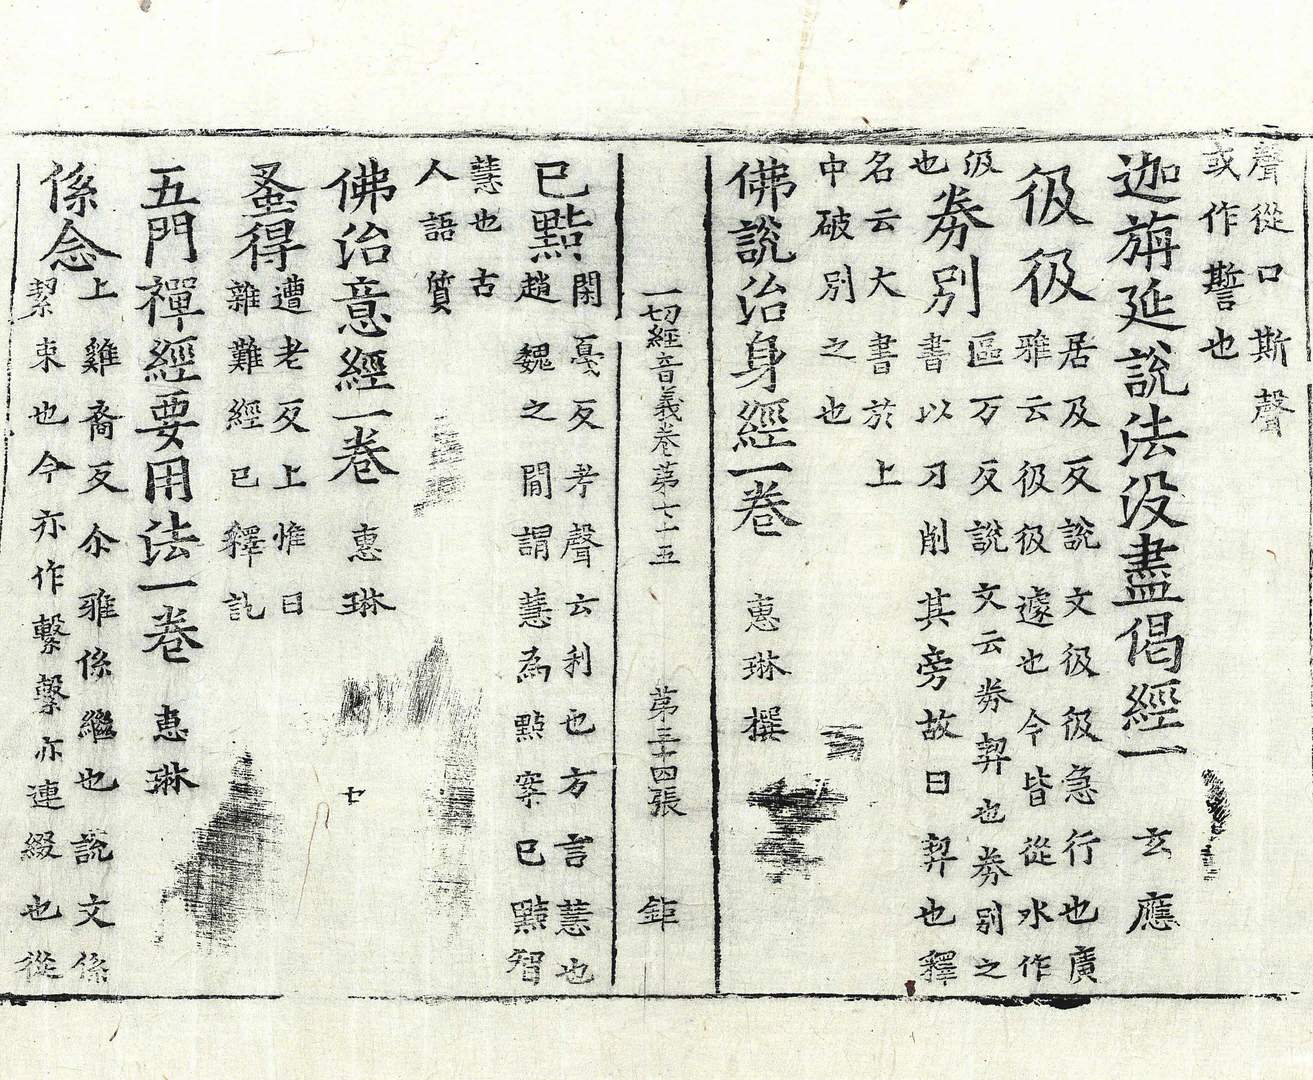 聲從口斯聲
或作㽄也
迦旃延說法沒盡偈經一 玄應
彶彶
居及反說文彶彶急行也廣
雅云彶彶遽也今皆從水作
汲
也
券別
區万反說文云券契也券別之
書以刀削其旁故曰契也釋
名云大書於上
中破別之也
佛說治身經一卷 惠琳撰
一切經音義卷第七十五 第三十四張 鉅
已黠
閑戛反考聲云利也方言慧也
趙魏之閒謂慧為黠案已黠智
慧也古
人語質
佛治意經一卷 惠琳
七
蚤得
遭老反上惟日
雜難經已釋訖
五門禪經要用法一卷 惠琳
係念
上雞裔反尒雅係繼也說文係
絜束也今亦作繫繫亦連綴也從